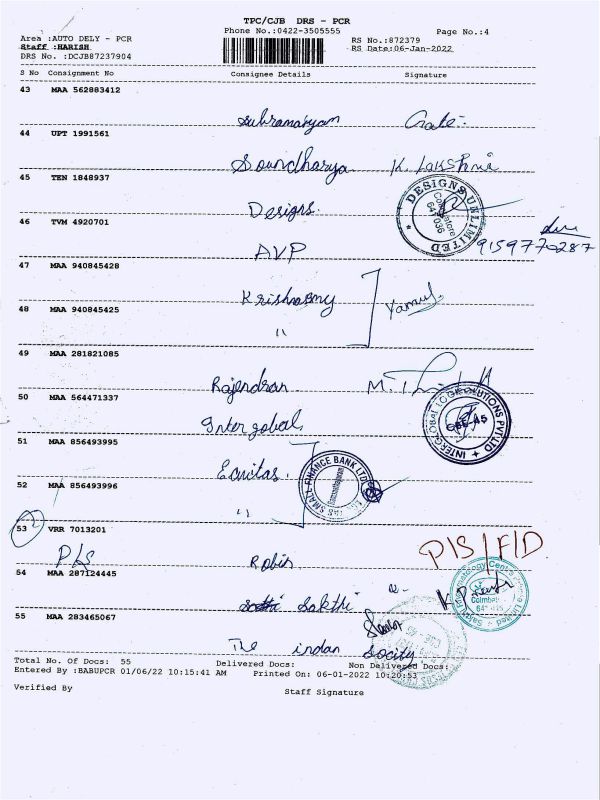 TPC/CJB DRS - PCR
Phone No.:0422-3505555
Page No.:4
Area :AUTO DELY - PCR
RS No.:872379
Staff :HARISH
RS Date:06-Jan-2022
DRS No. :DCJB87237904
S No Consignment No Consignee Details Signature
43 MAA 562883412
Subramanyam
44 UPT 1991561
Soundharya K. Lakshmi
45 TEN 1848937
Designs
DESIGNS UNLIMITED
Coimbatore
641 036
46 TVM 4920701
AVP 9159770287
47 MAA 940845428
Krishnasmy
48 MAA 940845425
"
49 MAA 281821085
Rajendran M.
50 MAA 564471337
Interglobal
51 MAA 856493995
Equitas
SMALL FINANCE BANK LTD
52 MAA 856493996
"
53 VRR 7013201
P/S Robin P/S/F/D
54 MAA 287124445
Sakthi
55 MAA 283465067
The indan Socity
Total No. Of Docs: 55 Delivered Docs: Non Delivered Docs:
Entered By :BABUPCR 01/06/22 10:15:41 AM Printed On: 06-01-2022 10:20:53
Verified By Staff Signature